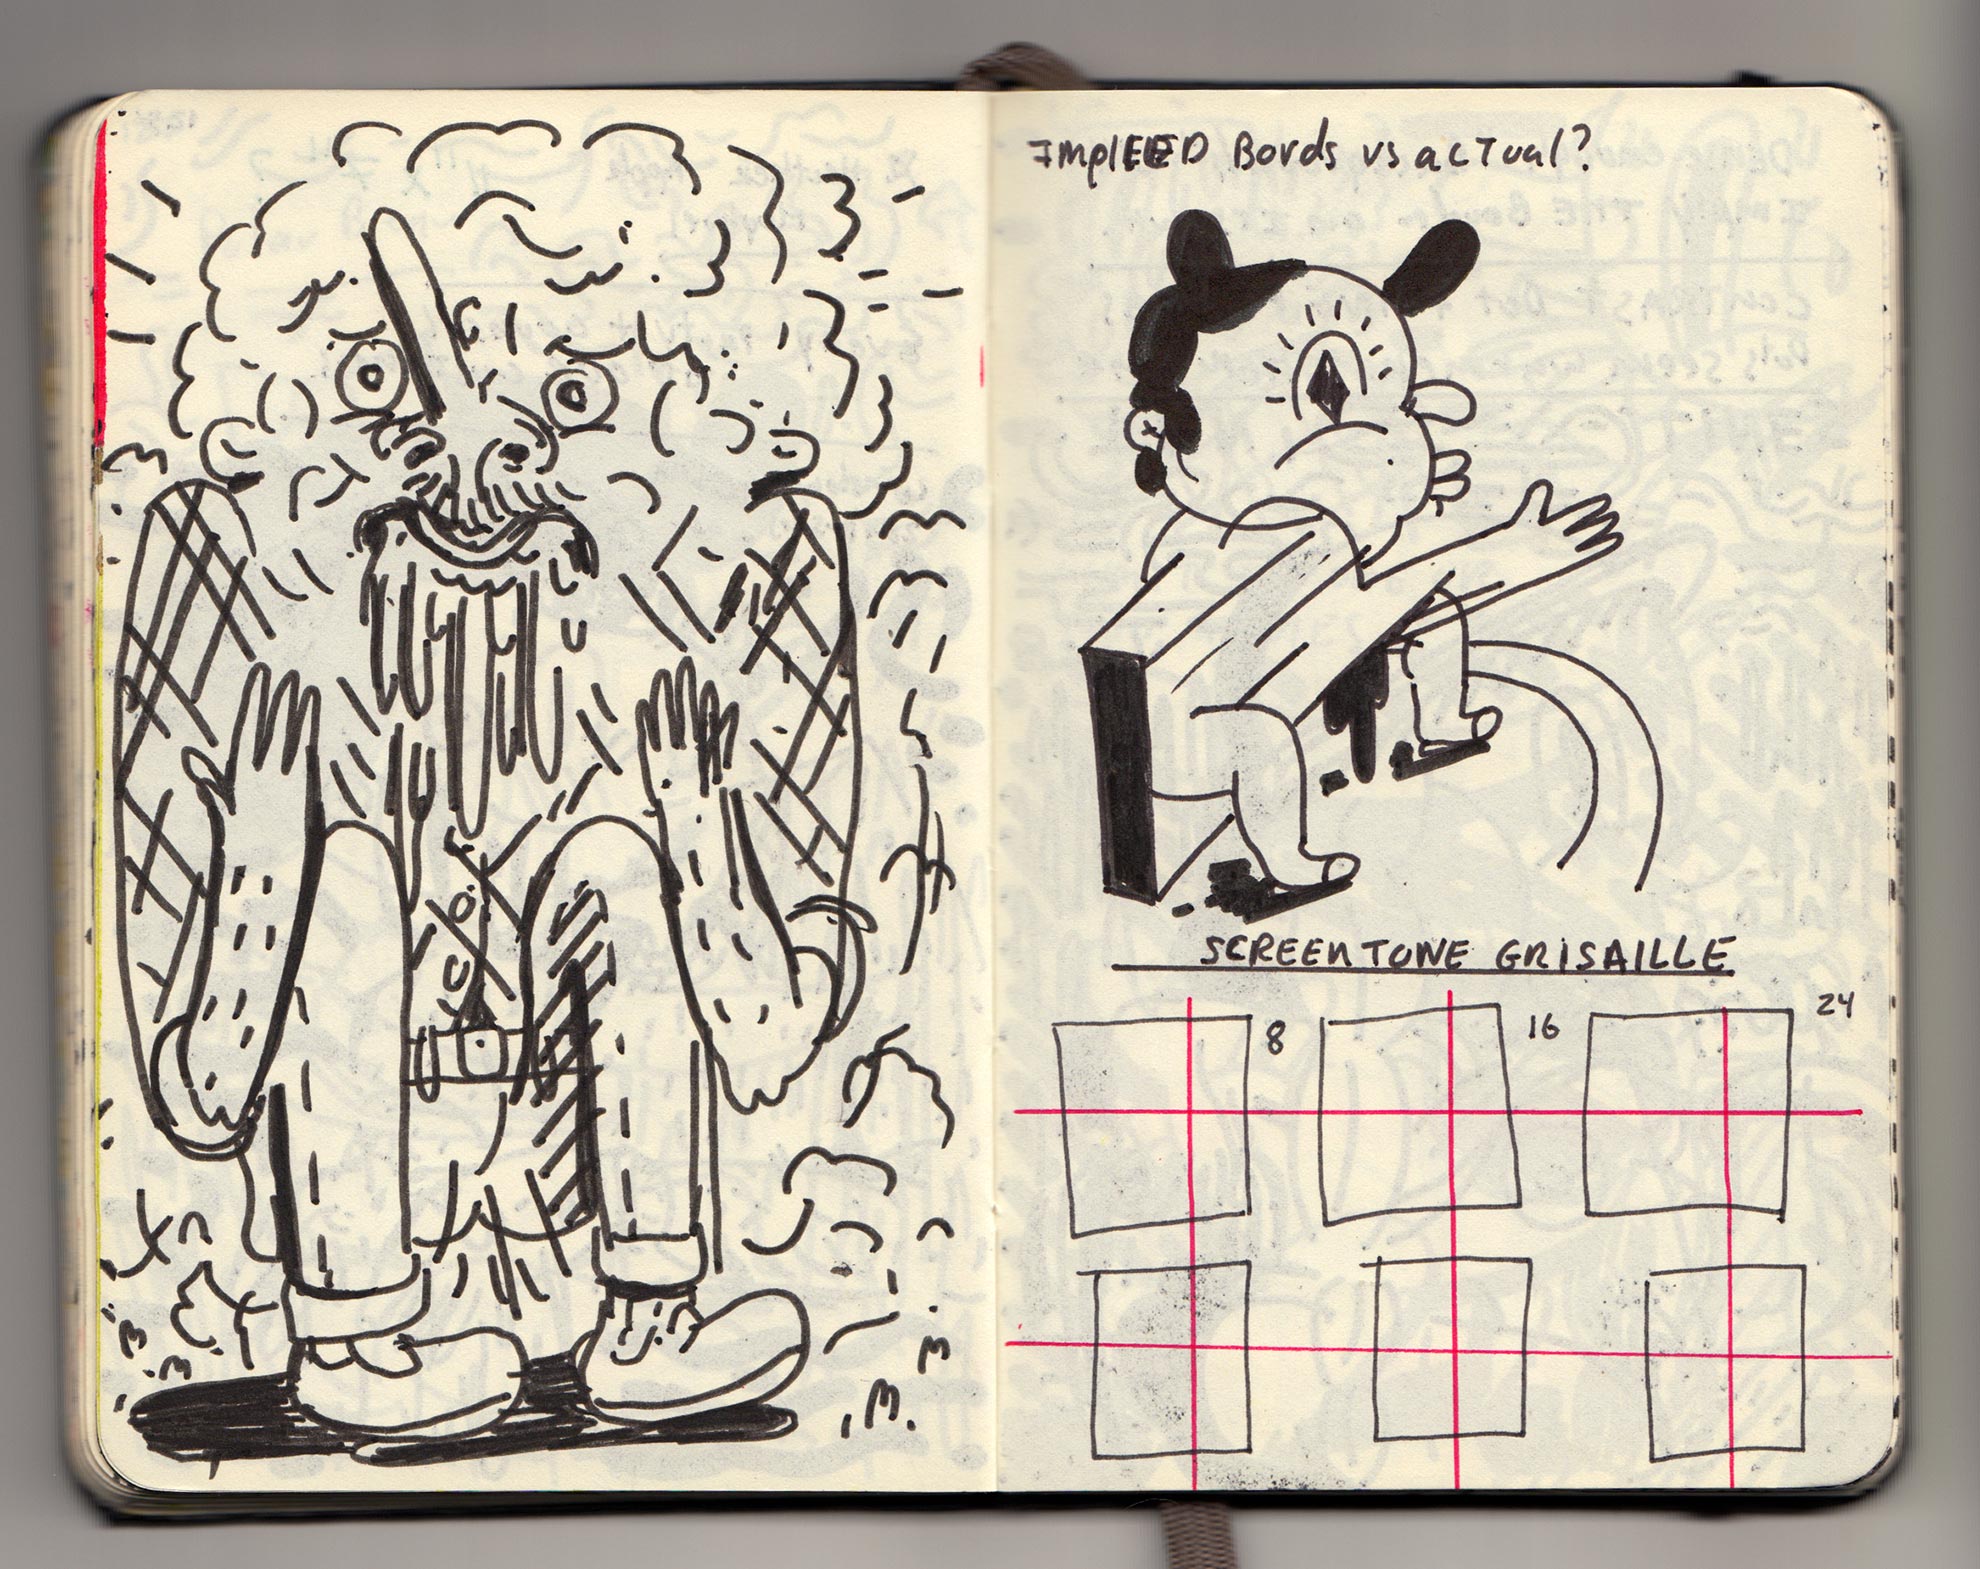 ImplEED Bords vs acTual?
SCREENTONE GRISAILLE
8 16 24